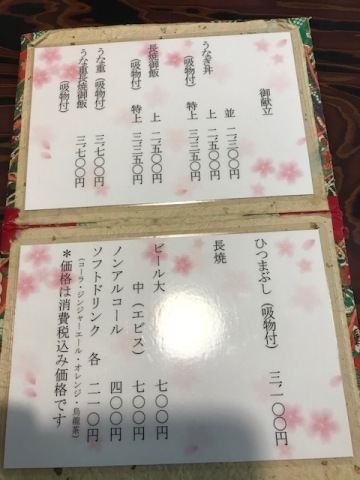 御献立
うなぎ丼 並 二、三〇〇円
(吸物付) 上 二、五〇〇円
特上 三、三五〇円
長焼御飯 上 二、五〇〇円
(吸物付) 特上 三、三五〇円
うな重(吸物付) 三、七〇〇円
うな重長焼御飯 三、七〇〇円
(吸物付)
ひつまぶし(吸物付) 三、一〇〇円
長焼
ビール大 七〇〇円
中(エビス) 七〇〇円
ノンアルコール 四〇〇円
ソフトドリンク 各 二一〇円
(コーラ・ジンジャーエール・オレンジ・烏龍茶)
*価格は消費税込み価格です